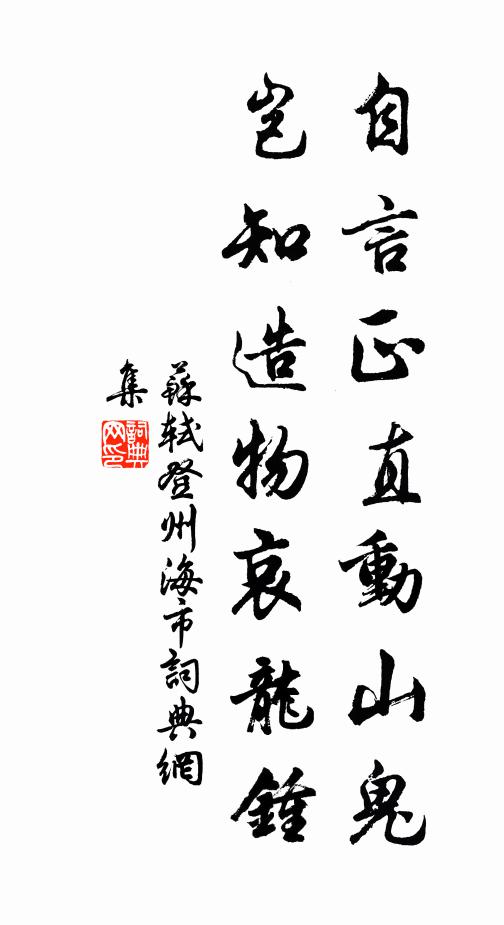 自言正直動山鬼
豈知造物哀龍鍾
蘇軾登州海市詞典網
集
詞典網印